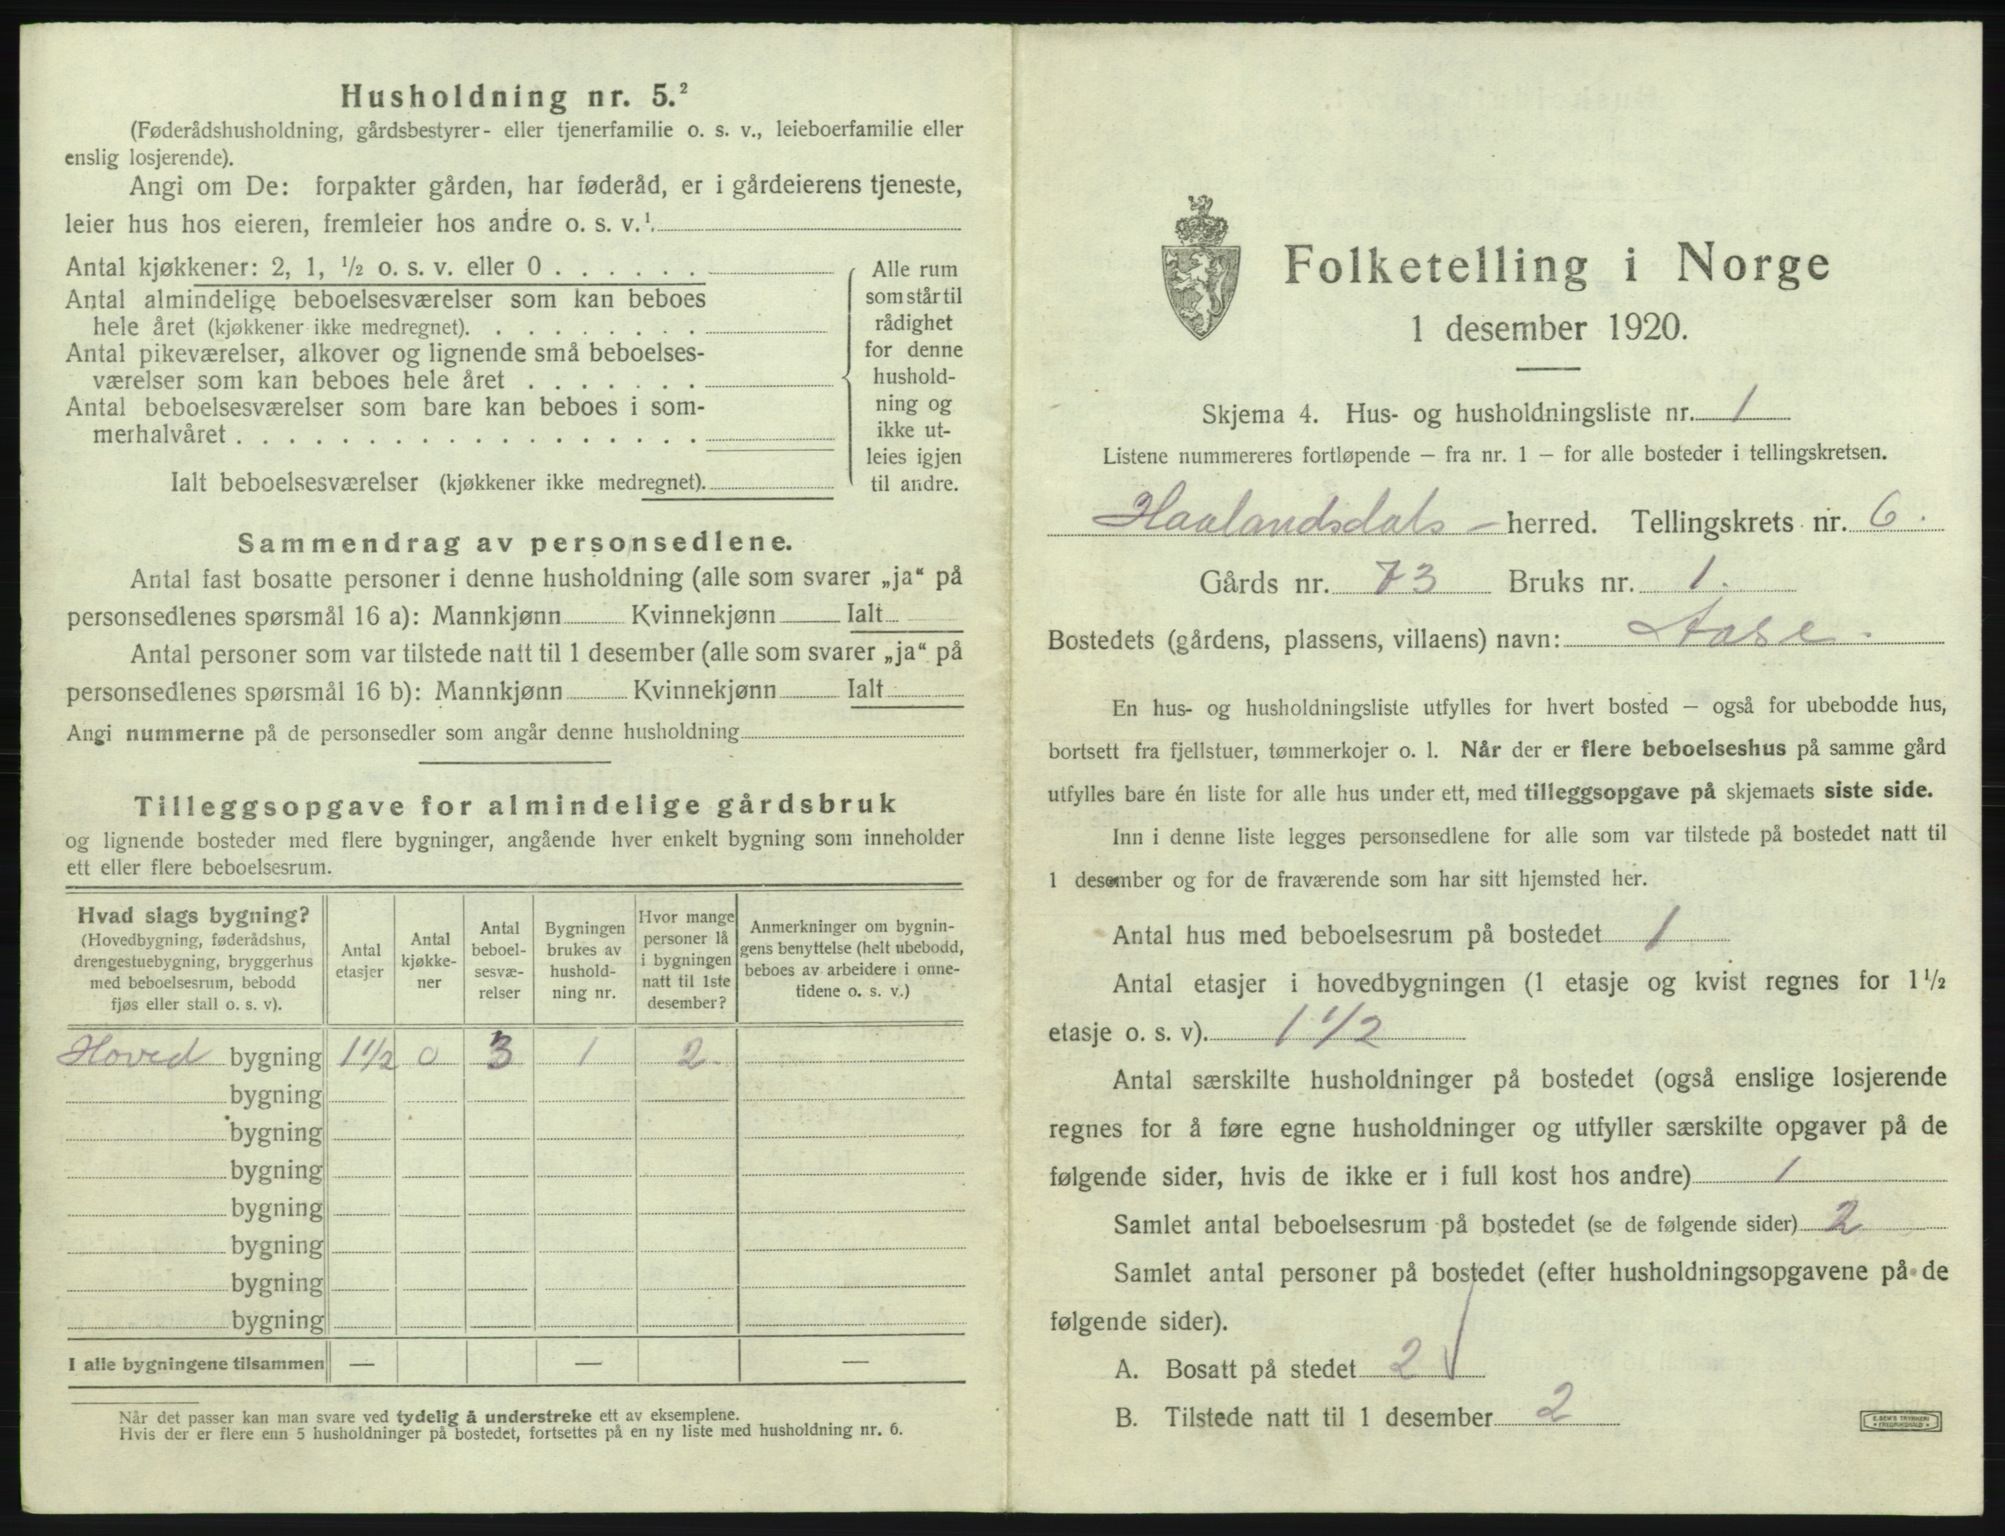 Husholdning nr. 5.²
(Føderådshusholdning, gårdsbestyrer- eller tjenerfamilie o. s. v., leieboerfamilie eller
enslig losjerende).
Angi om De: forpakter gården, har føderåd, er i gårdeierens tjeneste,
leier hus hos eieren, fremleier hos andre o. s. v.¹.
Antal kjøkkener: 2, 1, ½ o. s. v. eller 0 . . . . . .
Antal almindelige beboelsesværelser som kan beboes
hele året (kjøkkener ikke medregnet). . . . . . . . .
Antal pikeværelser, alkover og lignende små beboelses-
værelser som kan beboes hele året . . . . . . .
Antal beboelsesværelser som bare kan beboes i som-
merhalvåret . . . . . . . . . . . . . . . . . .
Ialt beboelsesværelser (kjøkkener ikke medregnet).
Alle rum
som står til
rådighet
for denne
hushold-
ning og
ikke ut-
leies igjen
til andre.
Sammendrag av personsedlene.
Antal fast bosatte personer i denne husholdning (alle som svarer „ja“ på
personsedlenes spørsmål 16 a): Mannkjønn Kvinnekjønn Ialt
Antal personer som var tilstede natt til 1 desember (alle som svarer „ja“ på
personsedlenes spørsmål 16 b): Mannkjønn Kvinnekjønn Ialt
Angi nummerne på de personsedler som angår denne husholdning
Tilleggsopgave for almindelige gårdsbruk
og lignende bosteder med flere bygninger, angående hver enkelt bygning som inneholder
ett eller flere beboelsesrum.
Hvad slags bygning?
(Hovedbygning, føderådshus,
drengestuebygning, bryggerhus
med beboelsesrum, bebodd
fjøs eller stall o. s. v).
Antal
etasjer
Antal
kjøkke-
ner
Antal
beboel-
sesvæ-
relser
Bygningen
brukes av
hushold-
ning nr.
Hvor mange
personer lå
i bygningen
natt til 1ste
desember?
Anmerkninger om bygnin-
gens benyttelse (helt ubebodd,
beboes av arbeidere i onne-
tidene o. s. v.)
Hoved bygning 1½ 0 3 1 2
bygning
bygning
bygning
bygning
bygning
bygning
bygning
I alle bygningene tilsammen — — —
Når det passer kan man svare ved tydelig å understreke ett av eksemplene.
Hvis der er flere enn 5 husholdninger på bostedet, fortsettes på en ny liste med husholdning nr. 6.
Folketelling i Norge
1 desember 1920.
Skjema 4. Hus- og husholdningsliste nr. 1
Listene nummereres fortløpende — fra nr. 1 — for alle bosteder i tellingskretsen.
Haalandsdals - herred. Tellingskrets nr. 6.
Gårds nr. 73 Bruks nr. 1.
Bostedets (gårdens, plassens, villaens) navn: Aase.
En hus- og husholdningsliste utfylles for hvert bosted — også for ubebodde hus,
bortsett fra fjellstuer, tømmerkojer o. l. Når der er flere beboelseshus på samme gård
utfylles bare én liste for alle hus under ett, med tilleggsopgave på skjemaets siste side.
Inn i denne liste legges personsedlene for alle som var tilstede på bostedet natt til
1 desember og for de fraværende som har sitt hjemsted her.
Antal hus med beboelsesrum på bostedet 1
Antal etasjer i hovedbygningen (1 etasje og kvist regnes for 1½
etasje o. s. v). 1 1/2
Antal særskilte husholdninger på bostedet (også enslige losjerende
regnes for å føre egne husholdninger og utfyller særskilte opgaver på de
følgende sider, hvis de ikke er i full kost hos andre) 1
Samlet antal beboelsesrum på bostedet (se de følgende sider) 2
Samlet antal personer på bostedet (efter husholdningsopgavene på de
følgende sider).
A. Bosatt på stedet 2
B. Tilstede natt til 1 desember 2